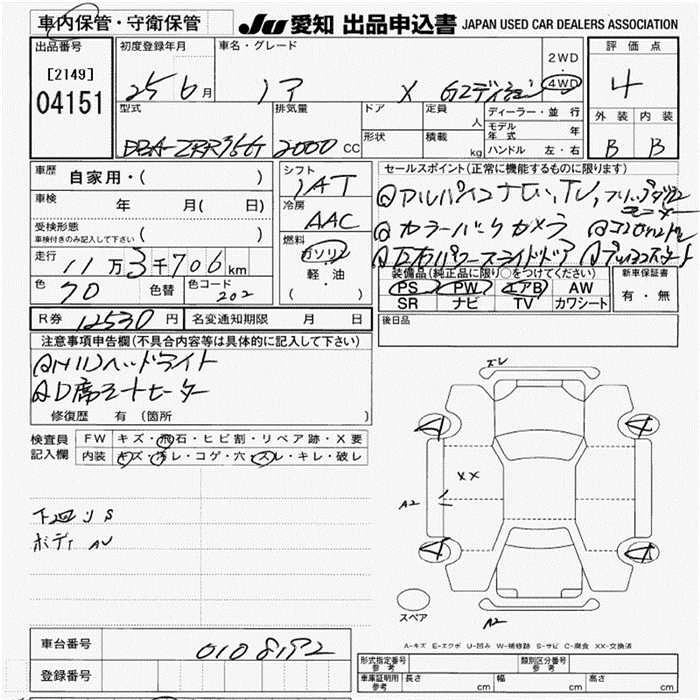 車内保管・守衛保管 JU 愛知 出品申込書 JAPAN USED CAR DEALERS ASSOCIATION
出品番号 初度登録年月 車名・グレード 評価点
[2149] 2WD
04151 25 6月 ノア X Gエディション 4WD 4
型式 排気量 ドア 定員 人 ディーラー・並行 外装 内装
DBA-ZRR75G 2000 CC 形状 積載 kg モデル年式 年 B B
ハンドル 左・右
車歴 自家用・( ) シフト セールスポイント(正常に機能するものに限ります)
IAT
車検 年 月( 日) 冷房 AAC
受検形態
車検付きのみ記入して下さい ( ) 燃料
走行 11万3千706km ガソリン
軽・油
( )
装備品(純正品に限り○をつけてください) 新車保証書
色 70 色替 色コード 202 PS PW エアB AW 有・無
SR ナビ TV カワシート
R券 12530円 名変通知期限 月 日 後日品
注意事項申告欄(不具合内容等は具体的に記入して下さい)
HIDヘッドライト
D席シートヒーター
修復歴 有 (箇所 )
検査員 FW キズ・飛石・ヒビ割・リペア跡・X要
記入欄 内装 キズ・汚レ・コゲ・穴・スレ・キレ・破レ
スレ
XX
A2
下回りS
ボディAU
スペア
A2
A-キズ E-エクボ U-凹み W-補修跡 S-サビ C-腐食 XX-交換済
車台番号 0108192
登録番号
形式指定番号参考 類別区分番号参考
車庫証明用参考 長さ cm 幅 cm 高さ cm